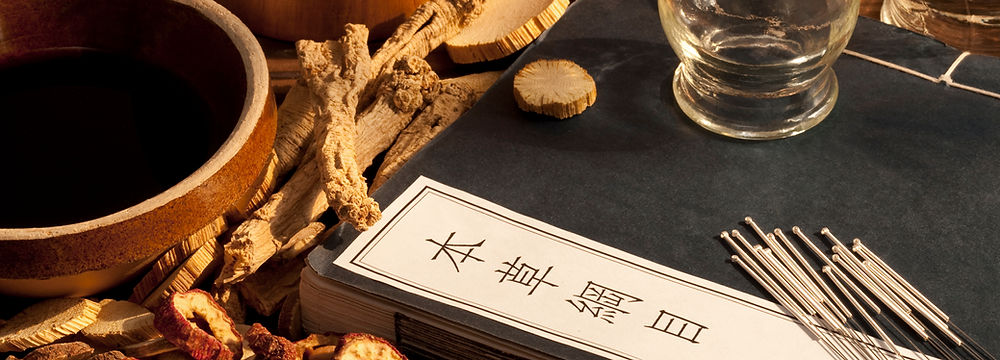 本草綱目